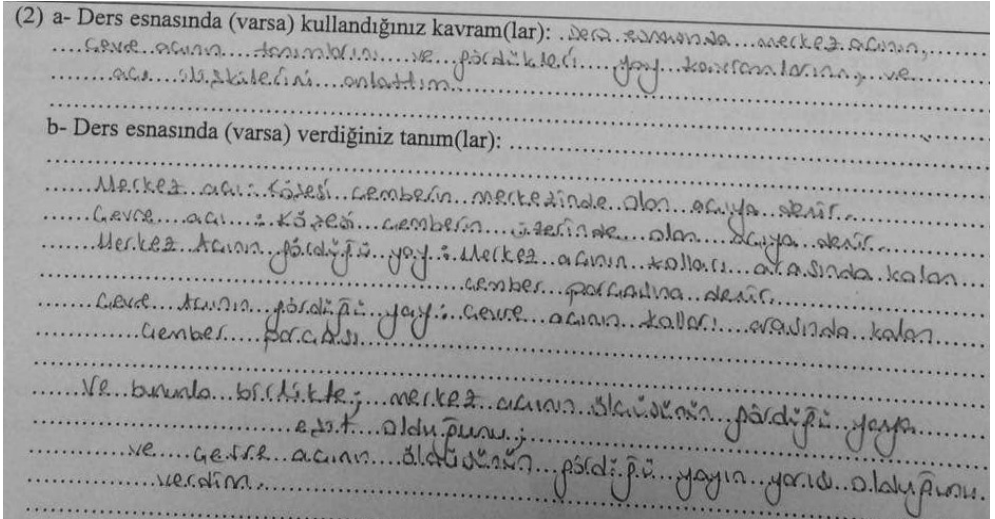 (2) a- Ders esnasında (varsa) kullandığınız kavram(lar): Ders esnasında merkez açının,
Çevre açının tanımlarını ve gördükleri yay kavramlarını, ve
açı ilişkilerini anlattım.
b- Ders esnasında (varsa) verdiğiniz tanım(lar):
Merkez açı: Köşesi çemberin merkezinde olan açıya denir.
Çevre açı : Köşesi çemberin üzerinde olan açıya denir.
Merkez Açının gördüğü yay : Merkez açının kolları arasında kalan
çember parçasına denir.
Çevre Açının gördüğü yay : Çevre açının kolları arasında kalan
Çember parçası
Ve bununla birlikte; merkez açının ölçüsünün gördüğü yaya
eşit olduğunu;
ve çevre açının ölçüsünün gördüğü yayın yarısı olduğunu.
verdim.